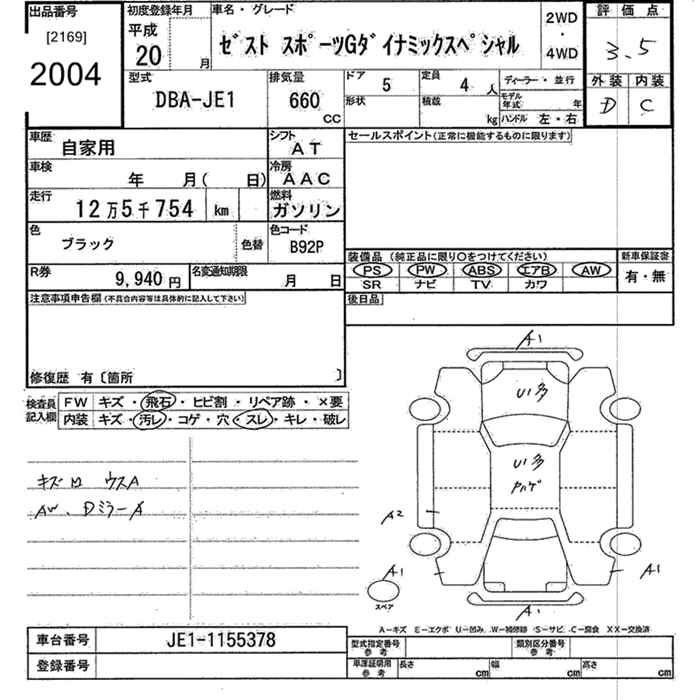 出品番号 初度登録年月 車名・グレード 2WD 評価点
[2169] 平成 ・
2004 20 月 ｾﾞｽﾄ ｽﾎﾟｰﾂGﾀﾞｲﾅﾐｯｸｽﾍﾟｼｬﾙ 4WD 3.5
型式 排気量 ドア 5 定員 4 人 ディーラー・並行 外装 内装
DBA-JE1 660 CC 形状 積載 kg モデル年式 年 D C
ハンドル 左・右
車歴 自家用 シフト AT セールスポイント(正常に機能するものに限ります)
車検 年 月( 日) 冷房 AAC
走行 12万5千754 km 燃料 ガソリン
色 ブラック 色替 色コード B92P
装備品 (純正品に限り○をつけてください) 新車保証書
R券 9,940円 名変通知期限 月 日 PS PW ABS エアB AW 有・無
SR ナビ TV カワ
注意事項申告欄(不具合内容等は具体的に記入して下さい) 後日品
修復歴 有〔箇所 〕
検査員記入欄 FW キズ・飛石・ヒビ割・リペア跡・×要
内装 キズ・汚レ・コゲ・穴・スレ・キレ・破レ
A1
U1多
キズロ ウスA
U1多
AW、Dミラー A
A2
A1
A1
スペア
A1
A－キズ E－エクボ U－凹み W－補修跡 S－サビ C－腐食 XX－交換済
車台番号 JE1-1155378 型式指定番号 参考 類別区分番号 参考
登録番号 車庫証明用 参考 長さ cm 幅 cm 高さ cm